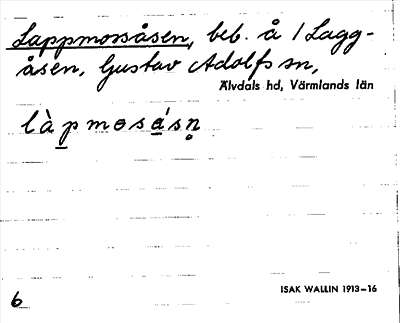 Lappmossåsen, beb. å / Lagg-
åsen, Gustav Adolfs sn,
Älvdals hd, Värmlands län
làp̲mɵsá̲sn̥
ISAK WALLIN 1913–16
6